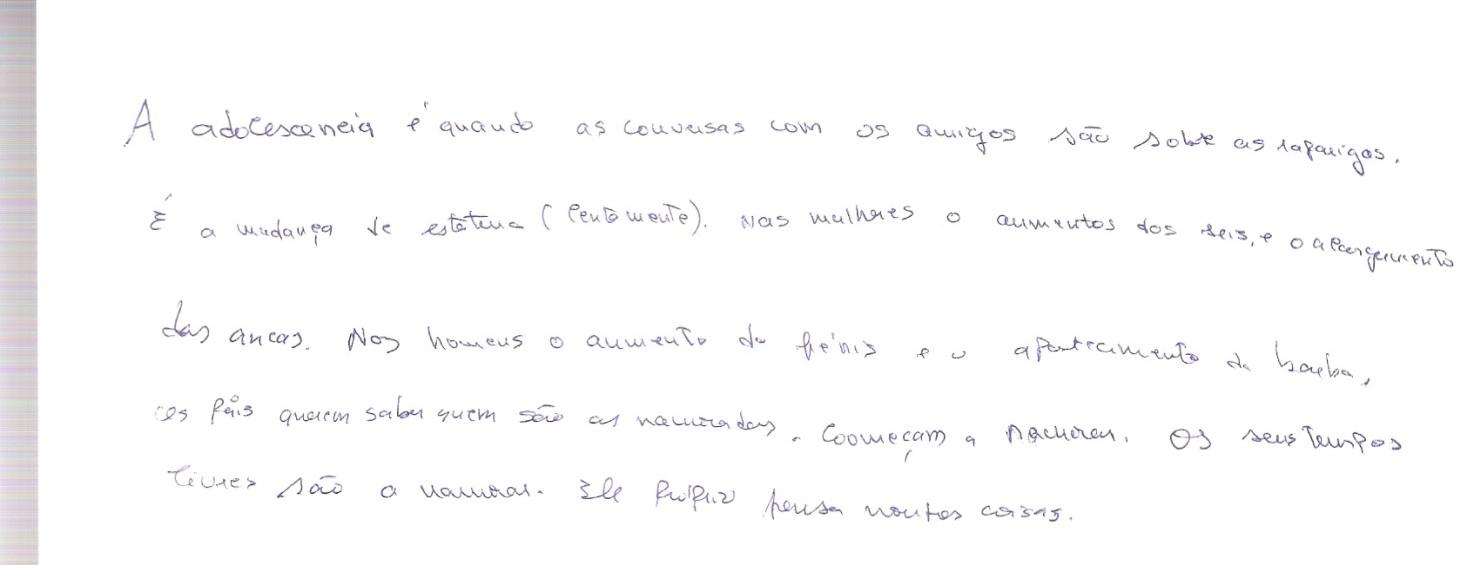 A adolescencia é quando as conversas com os amigos são sobre as raparigas.
É a mudança de estatura (lentamente). Nas mulheres o aumentos dos seis, e o alargamento
das ancas. Nos homens o aumento do pénis e o aparecimento da barba,
os pais querem saber quem são as namoradas. Coomeçam a namorar. Os seus tempos
livres são a namorar. Ele próprio pensa noutras coisas.